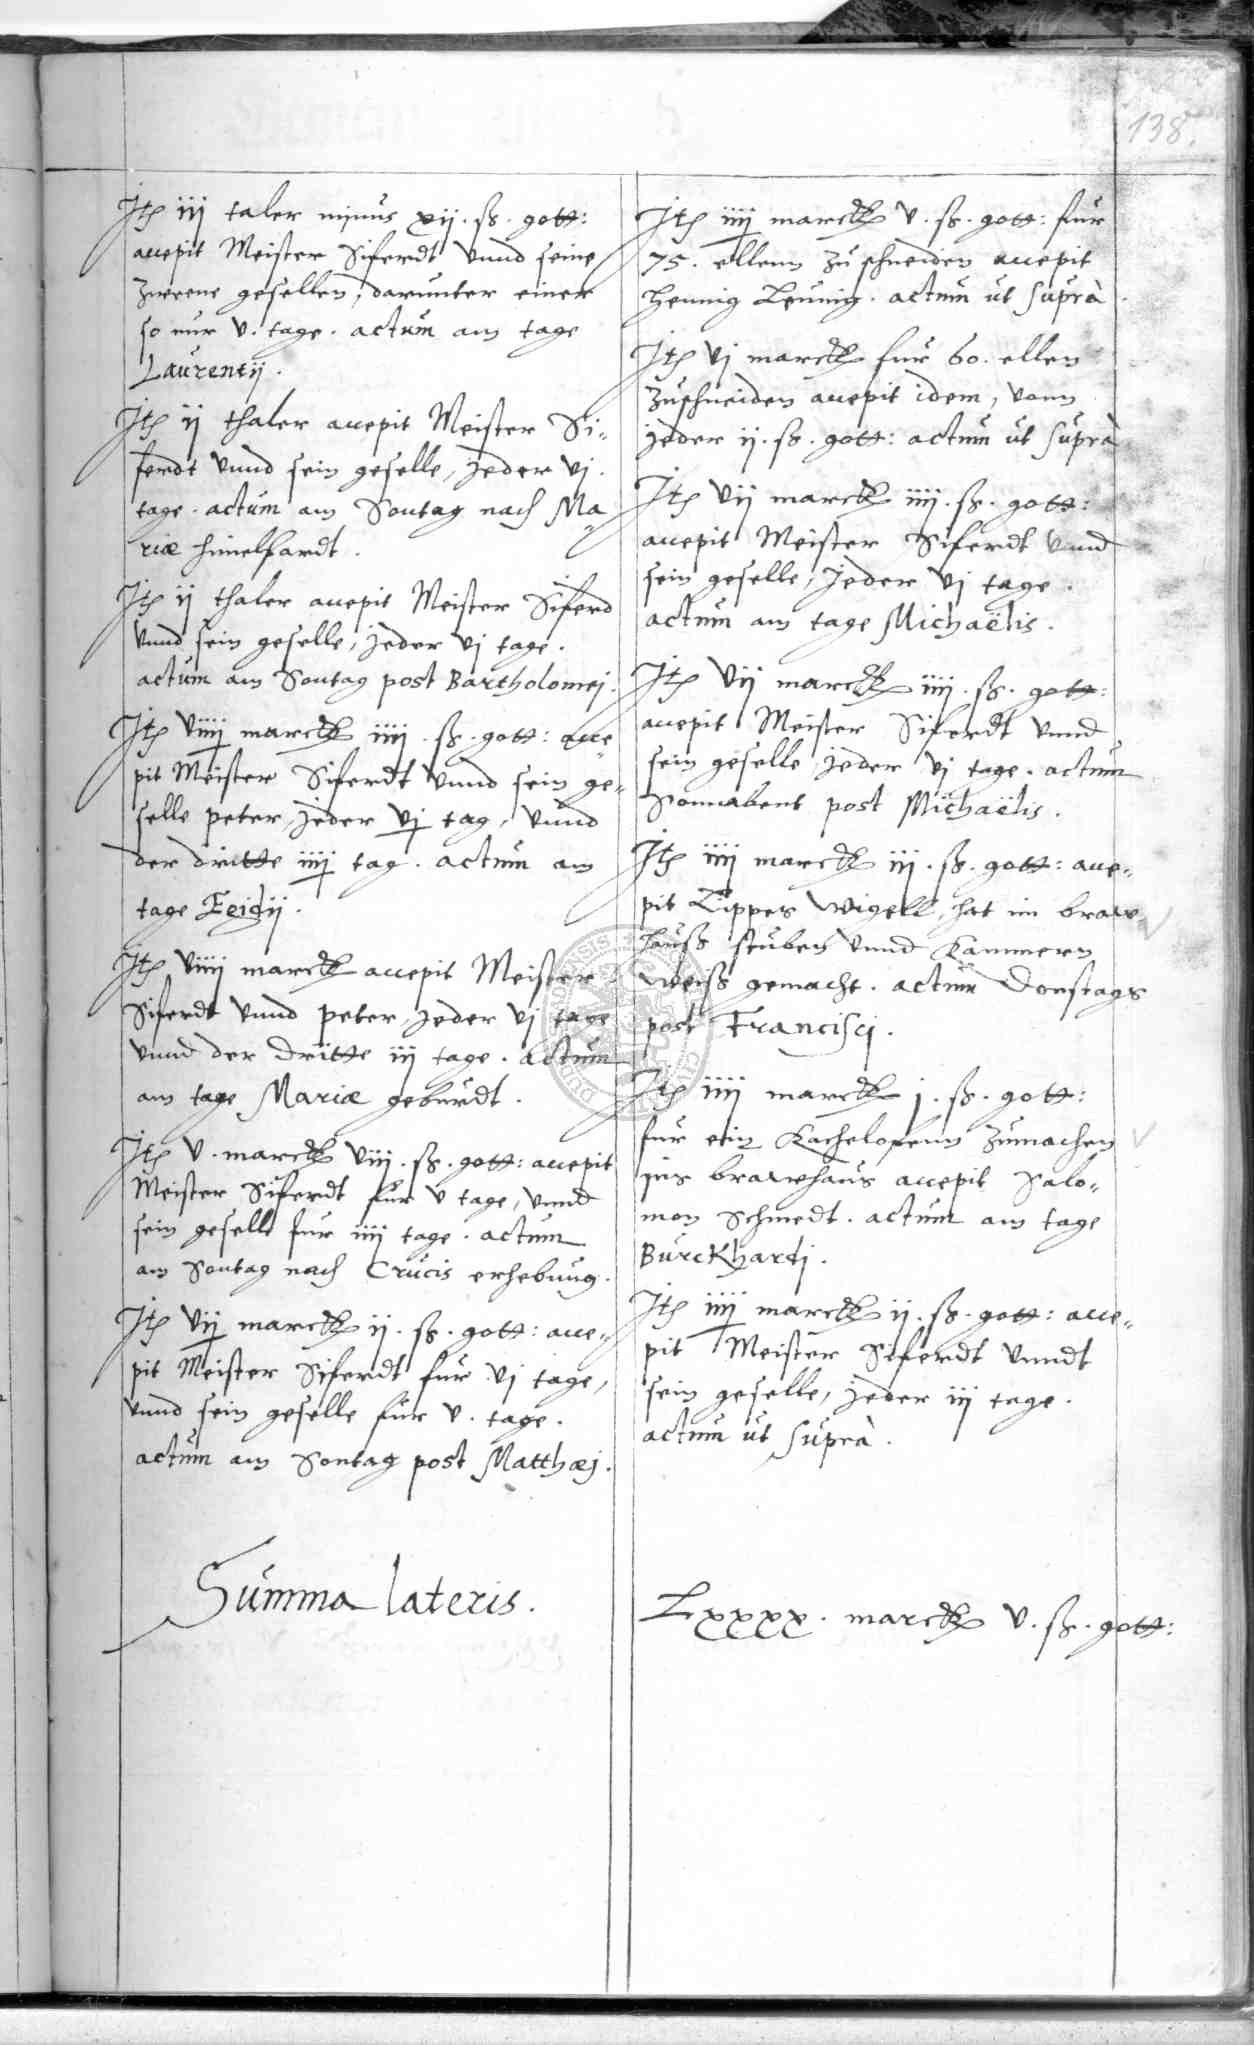 138.
Jt͠ iij taler minus xij. ß. gott:
accepit Meister Siferdt vnnd seine
zweene gesellen, darunter einer
so nur v. tage. actum am tage
Laurentij.
Jt͠ ij thaler accepit Meister Si„
ferdt vnnd sein geselle, jeder vj.
tage. actum am Sontag nach Ma„
riæ himelfardt.
Jt͠ ij thaler accepit Meister Siferd
vnnd sein geselle, jeder vj tage.
actum am Sontag post Bartholomej.
Jt͠ viiij marck iiij. ß. gott: acce
pit Meister Siferdt vnnd sein ge„
selle peter, jeder vj tag, vnnd
der dritte iiij tag. actum am
tage Egidij.
Jt͠ viiij marck accepit Meister
Siferdt vnnd peter, jeder vj tage
vnnd der dritte iij tage. actum
am tage Mariæ geburdt.
Jt͠ v. marck viij. ß. gott: accepit
Meister Siferdt fur v tage, vnnd
sein gesell fur iiij tage. actum
am Sontag nach Crucis erhebung.
Jt͠ vij marck ij. ß. gott: acce„
pit Meister Siferdt fur vj tage,
vnnd sein geselle fur v. tage.
actum am Sontag post Matthæj.
Summa lateris.
Jt͠ iiij marck v. ß. gott: fur
75. ellenn zu schneiden accepit
Hennig Leunig. actum ut suprà.
Jt͠ vj marck fur 60. ellen
zuschneiden accepit idem, vonn
jeder ij. ß. gott: actum ut suprà
Jt͠ vij marck iiij. ß. gott:
accepit Meister Siferdt vnnd
sein geselle, jeder vj tage.
actum am tage Michaëlis.
Jt͠ vij marck iiij. ß. gott:
accepit Meister Siferdt vnnd
sein geselle, jeder vj tage. actum
Sonnabent post Michaëlis.
Jt͠ iiij marck iij. ß. gott: acce„
pit Lippes Wigell, hat im braw„
hauß stuben vnnd Kammern
weiß gemacht. actum Donstags
post Francisci.
Jt͠ iiij marck j. ß. gott:
fur ein Kachelofenn zumachen
ins brawhaus accepit Salo„
mon Schmedt. actum am tage
Burckhardj.
Jt͠ iiij marck ij. ß. gott: acce„
pit Meister Siferdt vnndt
sein geselle, jeder iij tage.
actum ut suprà.
Lxxxx. marck v. ß. gott: